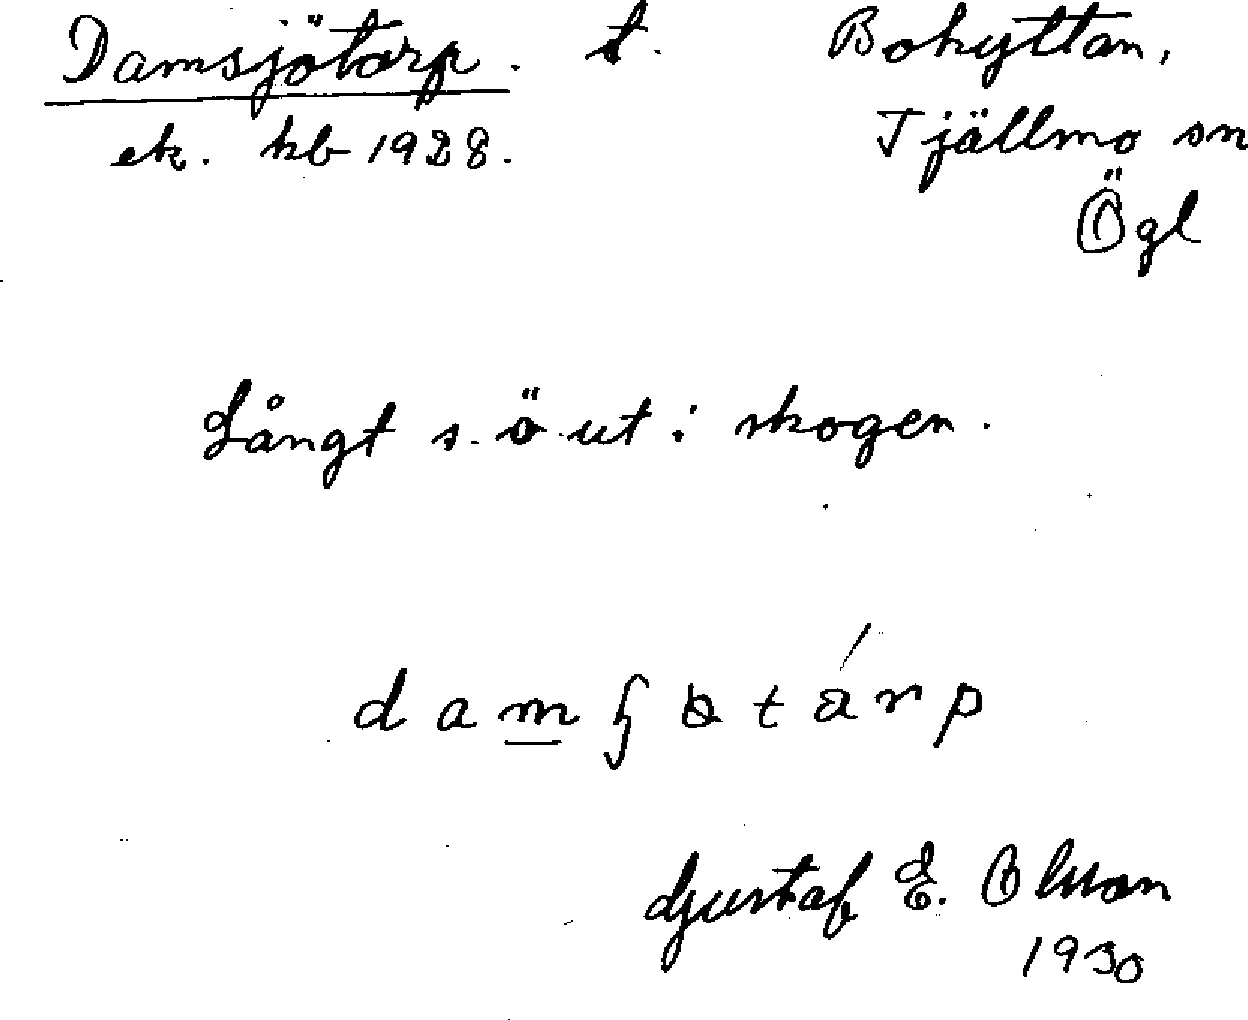 Damsjötorp. t. Bohyttan,
ek. kb 1928. Tjällmo sn
Ögl
Långt s. ö ut i skogen.
Gustaf E. Olson
1930